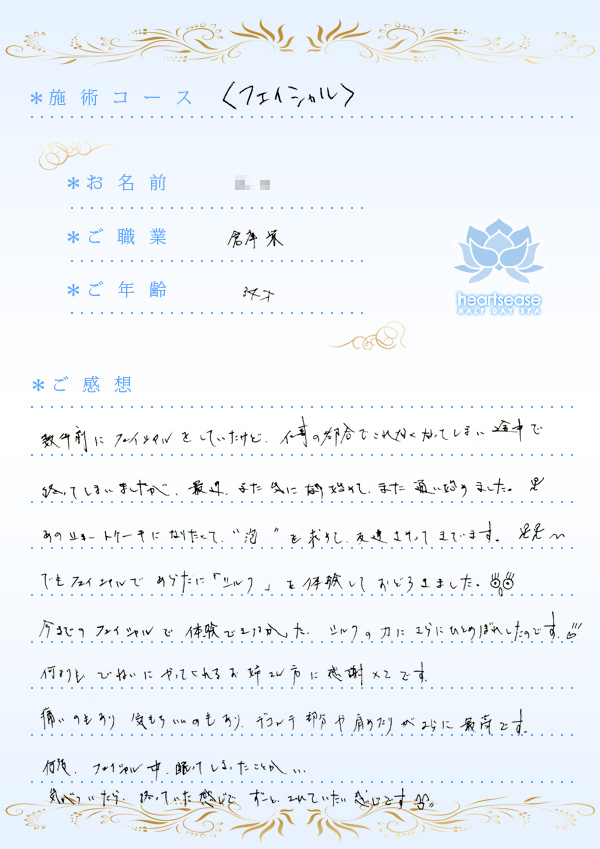 *施術コース <フェイシャル>
*お名前
*ご職業 倉庫業
*ご年齢 才
heartsease
HALF DAY SPA
*ご感想
数年前にフェイシャルをしていたけど、仕事の都合でこれなくなってしまい途中で
終ってしまいましたが、最近、また気になり始めて、また通い始めました。
あのショートケーキになりたくて、"泡"を求めて、友達さそってまでいます。
でもフェイシャルであらたに「シルク」を体験しておどろきました。
今までのフェイシャルで体験できなかった、シルクの力にさらにひとめぼれしたのです。
何よりも ていねいにやってくれるお姉さん方に感謝××です。
痛いのもあり 気もちいいのもあり、デコルテ部分や肩のあたりがさらに最高です。
何度、フェイシャル中、眠ってしまったことか…
気がついたら 終っていた感じで ずーと、されていたい感じです